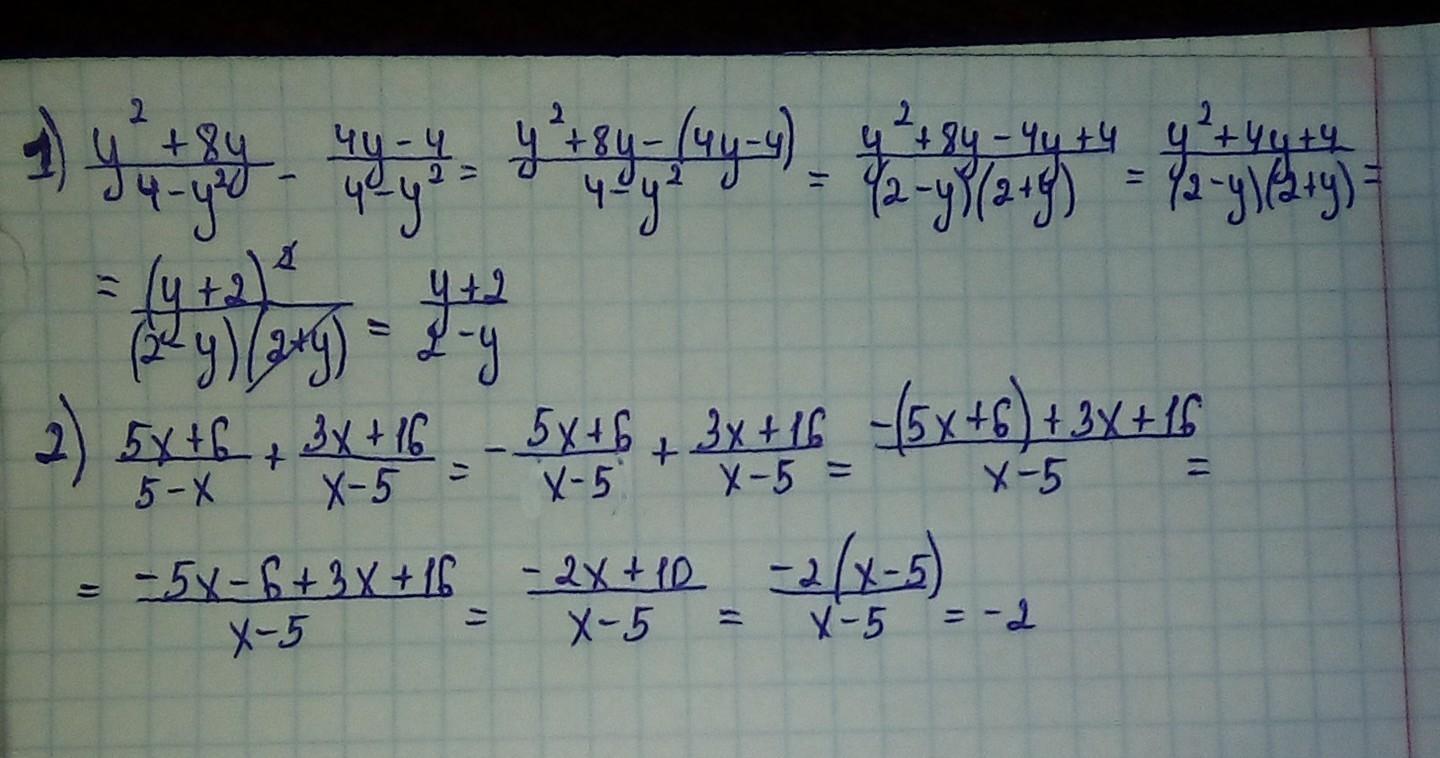 1) (y² + 8y)/(4 - y²) - (4y - 4)/(4 - y²) = (y² + 8y - (4y - 4))/(4 - y²) = (y² + 8y - 4y + 4)/((2 - y)(2 + y)) = (y² + 4y + 4)/((2 - y)(2 + y)) =
= (y + 2)²/((2 - y)(2 + y)) = (y + 2)/(2 - y)
2) (5x + 6)/(5 - x) + (3x + 16)/(x - 5) = - (5x + 6)/(x - 5) + (3x + 16)/(x - 5) = (-(5x + 6) + 3x + 16)/(x - 5) =
= (-5x - 6 + 3x + 16)/(x - 5) = (-2x + 10)/(x - 5) = (-2(x - 5))/(x - 5) = -2